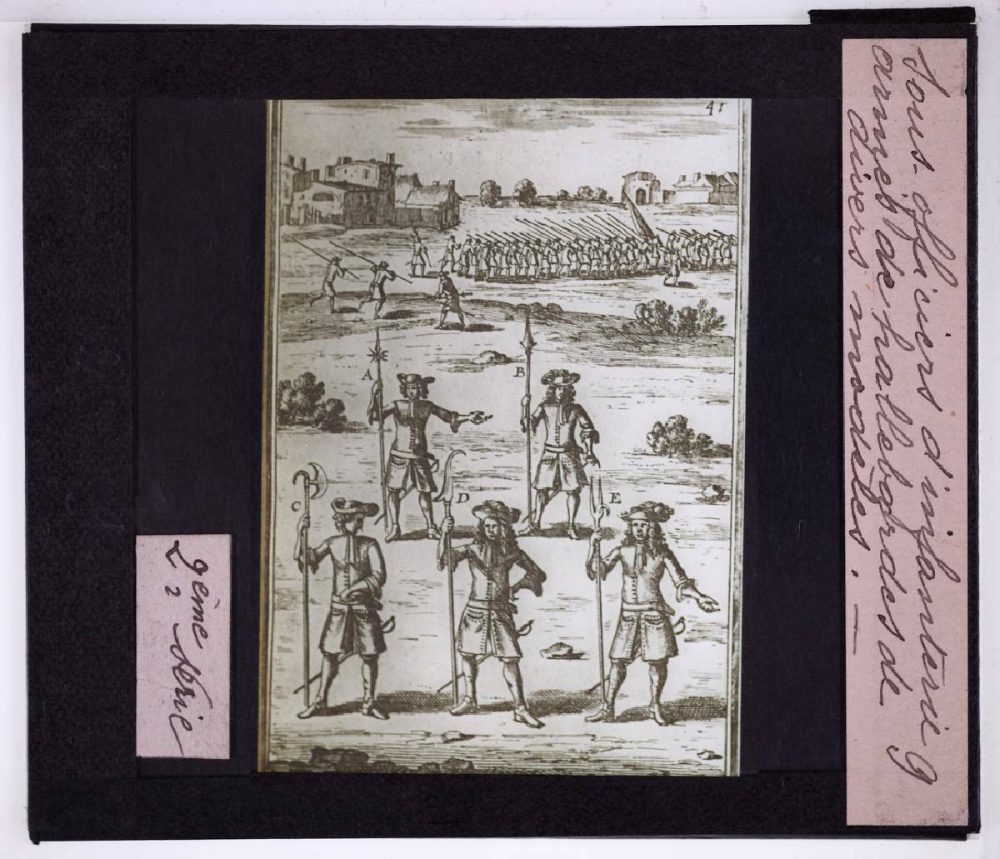 Sous-officiers d'infanterie g
armés de hallebardes de
divers modèles. —
2ème Série
2
41
A
B
C
D
E